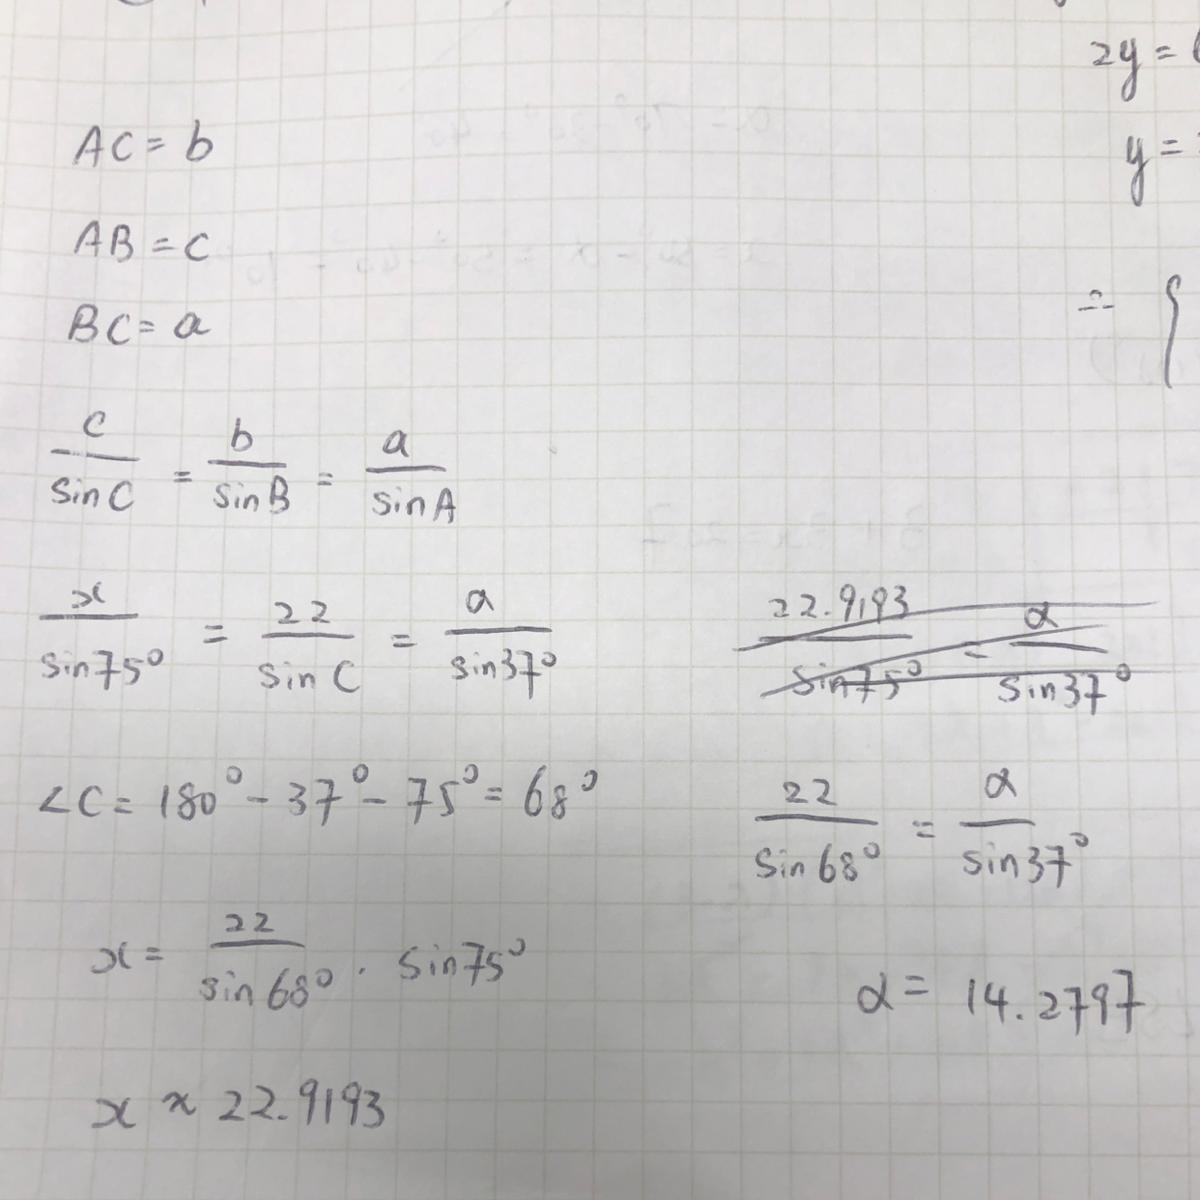 AC = b
AB = c
BC = a
c/sin C = b/sin B = a/sin A
x/sin75° = 22/sin C = a/sin37°
∠C = 180° - 37° - 75° = 68°
x = 22/sin68° · sin75°
x ≈ 22.9193
2y =
y =
22.9193/sin75° = a/sin37°
22/sin68° = a/sin37°
a = 14.2797